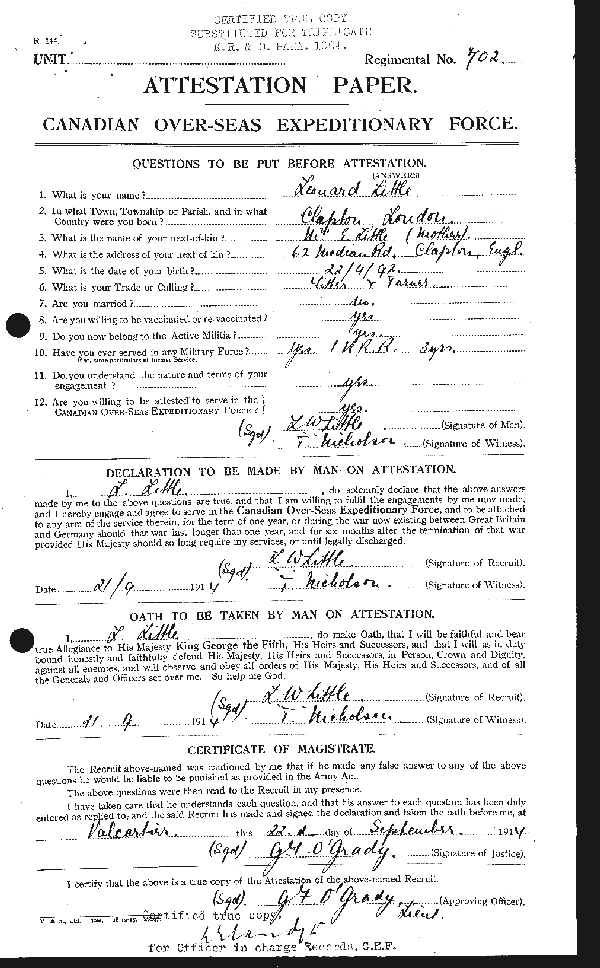 CERTIFIED TRUE COPY
SUBSTITUTED FOR TRIPLICATE
Regimental No. 702
UNIT
ATTESTATION PAPER.
CANADIAN OVER-SEAS EXPEDITIONARY FORCE.
QUESTIONS TO BE PUT BEFORE ATTESTATION.
(ANSWERS)
1. What is your name? Leonard Little
2. In what Town, Township or Parish, and in what
Country were you born? Clapton London
3. What is the name of your next-of-kin? Mrs E Little (mother)
4. What is the address of your next of kin? 62 Rd. Clapton, Engl.
5. What is the date of your birth? 22/9/92
6. What is your Trade or Calling? & Farmer
7. Are you married?
8. Are you willing to be vaccinated or re-vaccinated? yes
9. Do you now belong to the Active Militia? yes
10. Have you ever served in any Military Force? yes 3 yrs
If so, state particulars of former Service.
11. Do you understand the nature and terms of your
engagement? yes
12. Are you willing to be attested to serve in the
CANADIAN OVER-SEAS EXPEDITIONARY FORCE? yes.
(Sgd) L W Little (Signature of Man).
T Nicholson (Signature of Witness).
DECLARATION TO BE MADE BY MAN ON ATTESTATION.
I, L Little, do solemnly declare that the above answers
made by me to the above questions are true, and that I am willing to fulfil the engagements by me now made,
and I hereby engage and agree to serve in the Canadian Over-Seas Expeditionary Force, and to be attached
to any arm of the service therein, for the term of one year, or during the war now existing between Great Britain
and Germany should that war last longer than one year, and for six months after the termination of that war
provided His Majesty should so long require my services, or until legally discharged.
(Sgd) L W Little (Signature of Recruit).
Date 21/9 1914 T Nicholson (Signature of Witness).
OATH TO BE TAKEN BY MAN ON ATTESTATION.
I, L Little, do make Oath, that I will be faithful and bear
true Allegiance to His Majesty King George the Fifth, His Heirs and Successors, and that I will as in duty
bound honestly and faithfully defend His Majesty, His Heirs and Successors, in Person, Crown and Dignity,
against all enemies, and will observe and obey all orders of His Majesty, His Heirs and Successors, and of all
the Generals and Officers set over me. So help me God.
(Sgd) L W Little (Signature of Recruit).
Date 9 1914 T Nicholson (Signature of Witness).
CERTIFICATE OF MAGISTRATE.
The Recruit above-named was cautioned by me that if he made any false answer to any of the above
questions he would be liable to be punished as provided in the Army Act.
The above questions were then read to the Recruit in my presence.
I have taken care that he understands each question, and that his answer to each question has been duly
entered as replied to, and the said Recruit has made and signed the declaration and taken the oath before me, at
Valcartier this 22nd day of September 1914
(Sgd) G F O'Grady. (Signature of Justice).
I certify that the above is a true copy of the Attestation of the above-named Recruit.
(Sgd) G F O'Grady, Lieut (Approving Officer).
Certified true copy.
for Officer in charge Records, C.E.F.